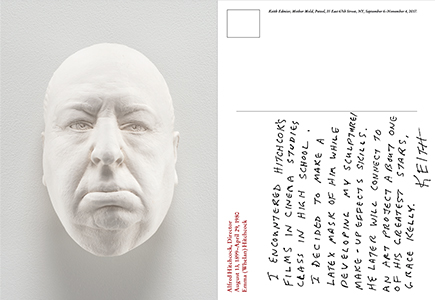 Alfred Hitchcock, Director
August 13, 1899–April 29, 1980
Emma (Whelan) Hitchcock
Keith Edmier, Mother Mold, Petzel, 35 East 67th Street, NY, September 6–November 4, 2017
I ENCOUNTERED HITCHCOK'S
FILMS IN CINEMA STUDIES
CLASS IN HIGH SCHOOL.
I DECIDED TO MAKE A
LATEX MASK OF HIM WHILE
DEVELOPING MY SCULPTURE/
MAKE-UP EFFECTS SKILLS.
HE LATER WILL CONNECT TO
AN ART PROJECT ABOUT ONE
OF HIS GREATEST STARS,
GRACE KELLY.
KEITH